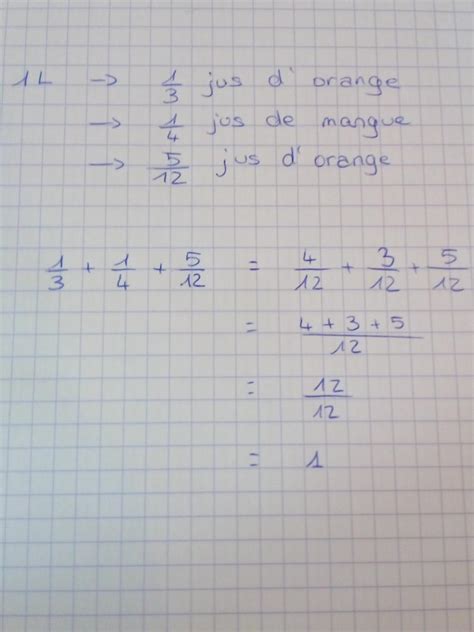 1L → 1/3 jus d'orange
→ 1/4 jus de mangue
→ 5/12 jus d'orange
1/3 + 1/4 + 5/12 = 4/12 + 3/12 + 5/12
= 4+3+5/12
= 12/12
= 1